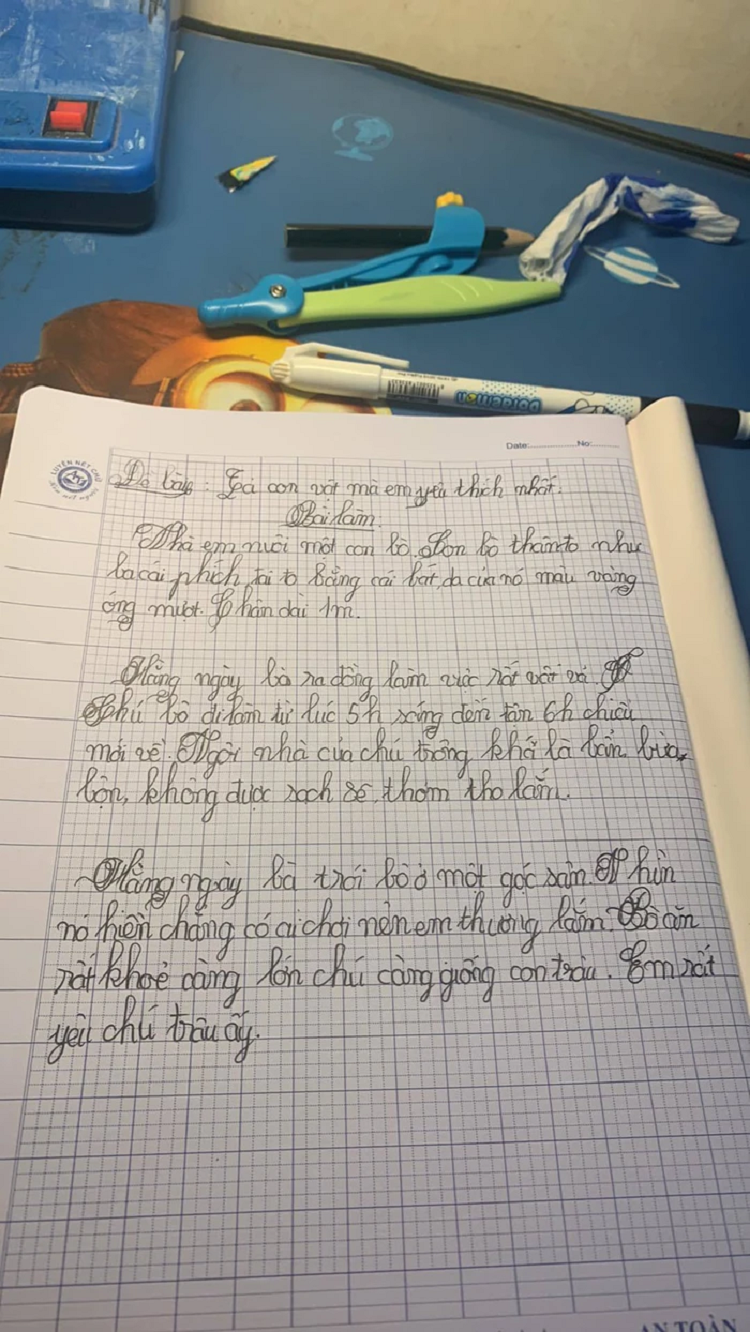 Date: No:
LUYỆN NÉT CHỮ
Doraemon
Đề bài: Tả con vật mà em yêu thích nhất.
Bài làm
Nhà em nuôi một con bò. Con bò thân to như
ba cái phích, tai to bằng cái bát, da của nó màu vàng
óng mượt. Chân dài 1m.
Hằng ngày bò ra đồng làm việc rất vất vả
Chú bò đi làm từ lúc 5h sáng đến tân 6h chiều
mới về. Ngôi nhà của chú trông khá là bẩn bừa
bộn, không được sach sẽ, thơm tho lắm.
Hằng ngày bà trói bò ở một góc sân. Nhìn
nó hiền chẳng có ai chơi nên em thương lắm. Bò ăn
rất khoẻ càng lớn chú càng giống con trâu. Em rất
yêu chú trâu ấy.
AN TOÀN